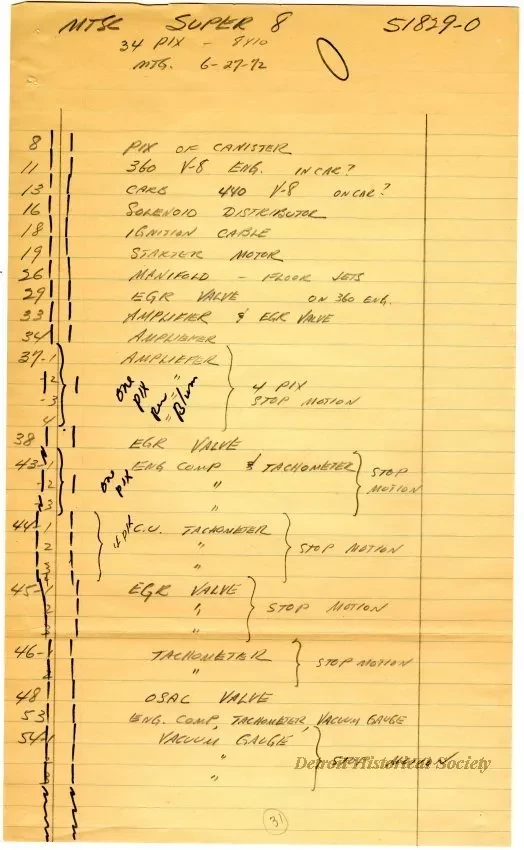 MTSC SUPER 8 51829-0
34 PIX - 8X10
MTG. 6-27-72
8 PIX OF CANISTER
11 360 V-8 ENG. IN CAR?
13 CARB 440 V-8 ON CAR?
16 SOLENOID DISTRIBUTOR
18 IGNITION CABLE
19 STARTER MOTOR
26 MANIFOLD - FLOOR JETS
29 EGR VALVE ON 360 ENG.
33 AMPLIFIER & EGR VALVE
34 AMPLIFIER
37-1 AMPLIFIER
-2 " 4 PIX
-3 " STOP MOTION
4
one PIX per B/wm
38 EGR VALVE
43-1 ENG COMP & TACHOMETER STOP
-2 " MOTION
3 "
one PIX
44-1 C.U. TACHOMETER
2 " STOP MOTION
3 "
4 PIX
45-1 EGR VALVE
2 " STOP MOTION
3 "
46-1 TACHOMETER STOP MOTION
2 "
48 OSAC VALVE
53 ENG. COMP, TACHOMETER, VACUUM GAUGE
54-1 VACUUM GAUGE
" STOP MOTION
"
Detroit Historical Society
31